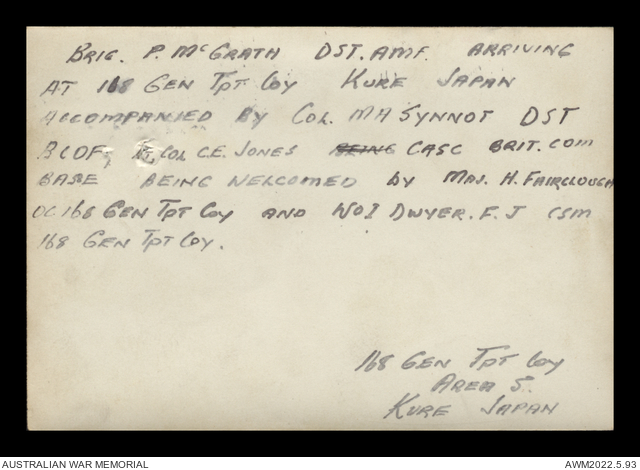 BRIG. P. McGRATH DST. AMF. ARRIVING
AT 168 GEN TPT COY KURE JAPAN
ACCOMPANIED BY COL. MA SYNNOT DST
BCOF, LT. COL C.E. JONES BEING CASC BRIT. COM
BASE BEING WELCOMED by MAJ. H. FAIRCLOUGH
OC 168 GEN TPT COY AND WO1 DWYER. F. J CSM
168 GEN TPT COY.
168 GEN TPT COY
AREA 5.
KURE JAPAN
AUSTRALIAN WAR MEMORIAL
AWM2022.5.93